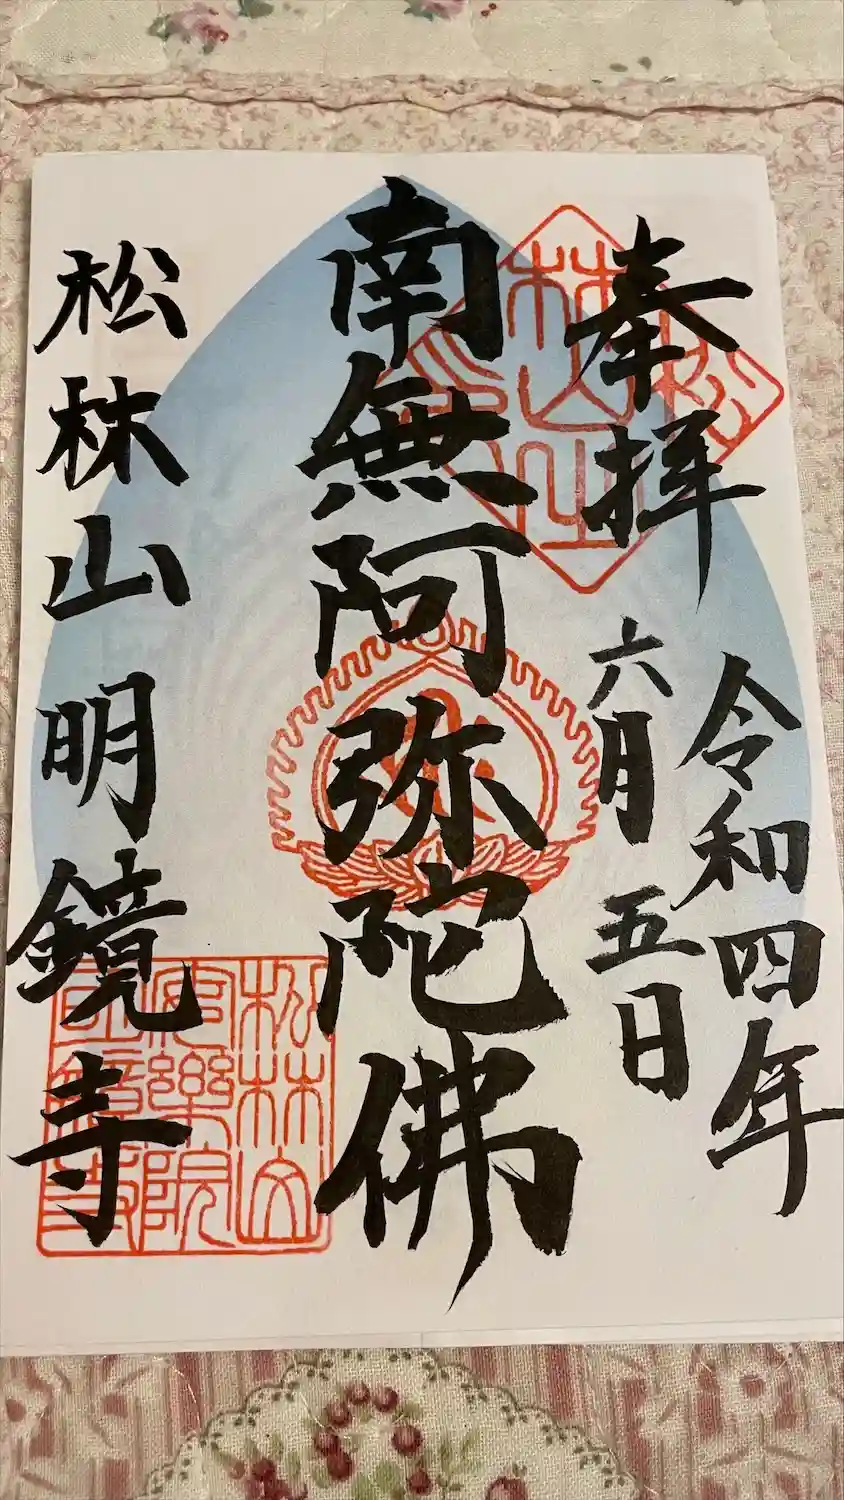 奉拝
令和四年
六月五日
南無阿弥陀佛
松林山明鏡寺
松林山
安樂院
明鏡寺